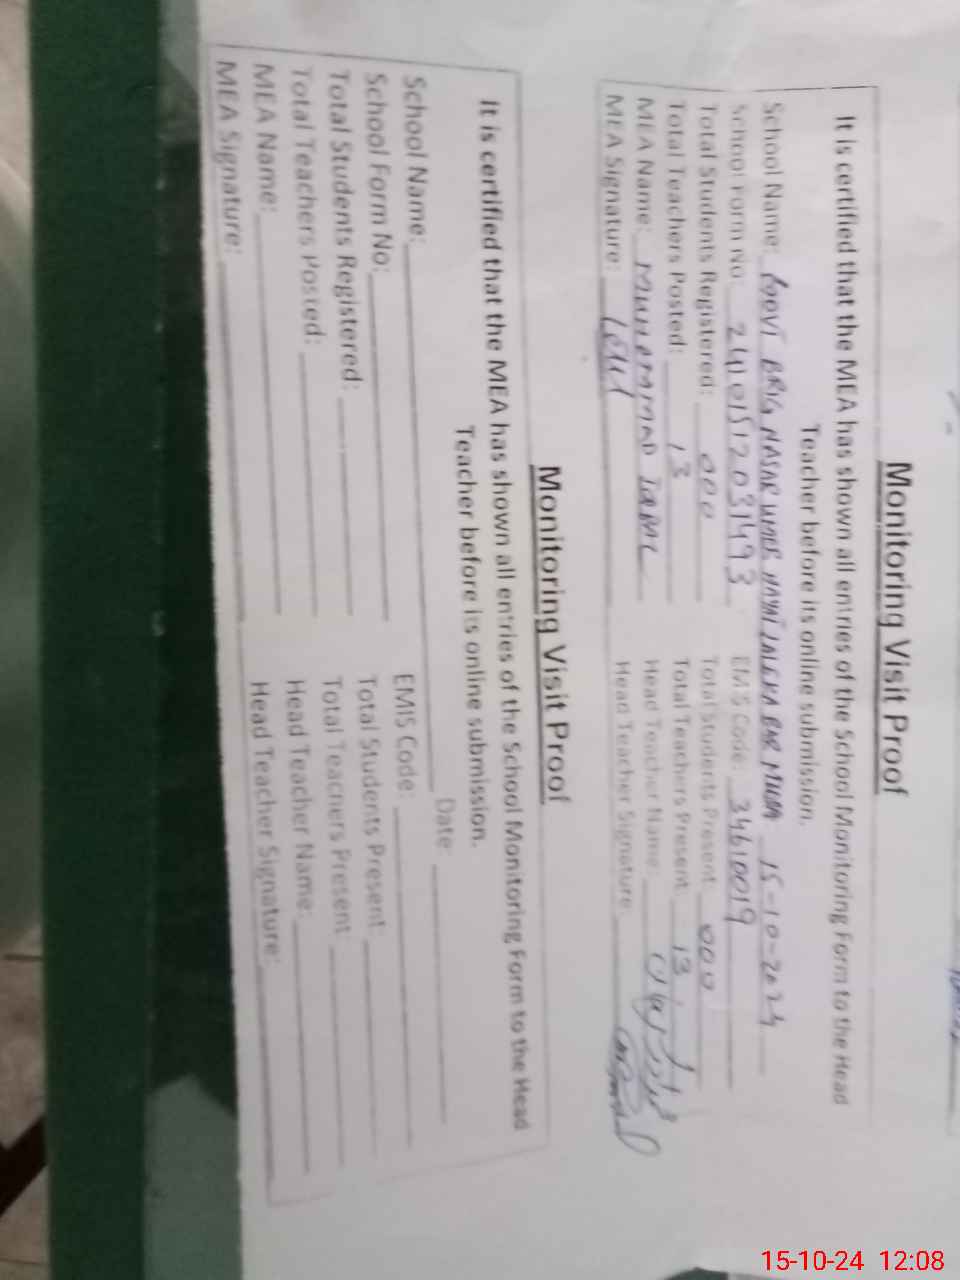 Monitoring Visit Proof
It is certified that the MEA has shown all entries of the School Monitoring Form to the Head
Teacher before its online submission.
School Name: BRIG NASAR HAYAT LALEKA 15-10-2024
School Form No: 24101512031493 EMIS Code: 34610019
Total Students Registered: 000 Total Students Present 000
Total Teachers Posted: 13 Total Teachers Present 13
MEA Name: MUHAMMAD IQBAL Head Teacher Name:
MEA Signature: Head Teacher Signature:
Monitoring Visit Proof
It is certified that the MEA has shown all entries of the School Monitoring Form to the Head
Teacher before its online submission.
School Name: Date:
School Form No: EMIS Code:
Total Students Registered: Total Students Present:
Total Teachers Posted: Total Teachers Present:
MEA Name: Head Teacher Name:
MEA Signature: Head Teacher Signature:
15-10-24 12:08